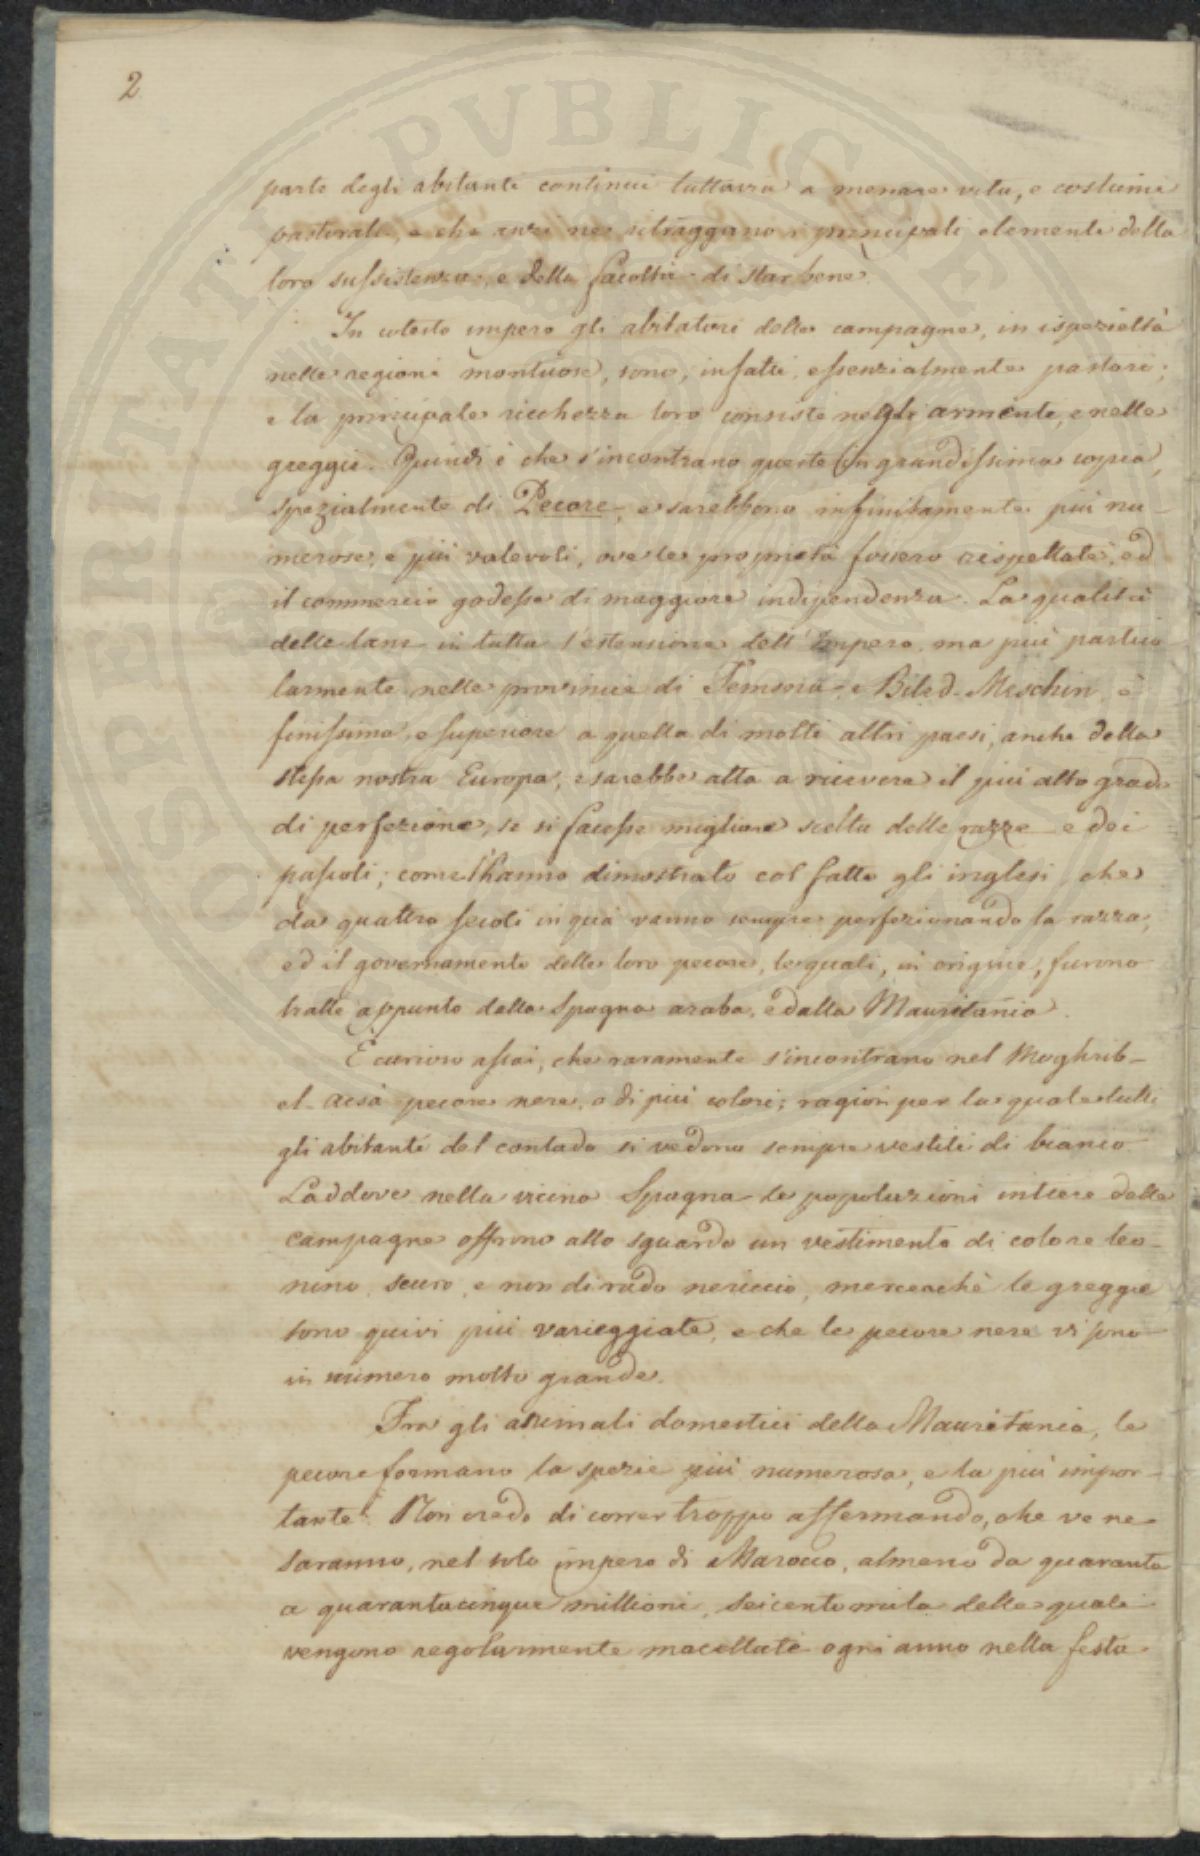 2
parte degli abitanti continui tuttavia a menare vita, e costumi
pastorali, e che anzi ne ritraggano i principali elementi della
loro sussistenza, e della facoltà di star bene.
In cotesto impero gli abitatori delle campagne, in ispezieltà
nelle regioni montuose, sono, infatti, essenzialmente pastori;
e la principale ricchezza loro consiste negli armenti, e nelle
greggie. Quindi è che s'incontrano queste in grandissima copia,
spezialmente di Pecore, e sarebbono infinitamente più nu-
merose, e più valevoli, ove le proprietà fossero rispettate, ed
il commercio godesse di maggiore indipendenza. La qualità
delle lane in tutta l'estensione dell'Impero, ma più partico
larmente nelle provincie di Temsna e Biled-Meschin, è
finissima, e superiore a quella di molti altri paesi, anche della
stessa nostra Europa, e sarebbe atta a ricevere il più alto grado
di perfezione, se si facesse migliore scelta delle razze e dei
pascoli; come l'hanno dimostrato col fatto gli inglesi, che
da quattro secoli in quà vanno sempre perfezionando la razza,
ed il governamento delle loro pecore, le quali, in origine, furono
tratte appunto dalla Spagna araba, e dalla Mauritania.
È curioso assai, che raramente s'incontrano nel Moghrib-
el-acsà pecore nere, o di più colori; ragion per la quale tutti
gli abitanti del contado si vedono sempre vestiti di bianco.
Laddove nella vicina Spagna le popolazioni intiere delle
campagne offrono allo sguardo un vestimento di colore leo-
nino, scuro, e non di rado nericcio, mercecchè le greggie
sono quivi più varieggiate, e che le pecore nere vi sono
in numero molto grande.
Fra gli animali domestici della Mauritania, le
pecore formano la spezie più numerosa, e la più impor-
tante. Non credo di correr troppo affermando, che ve ne
saranno, nel solo impero di Marocco, almeno da quaranta
a quarantacinque millioni, seicento mila delle quali
vengono regolarmente macellate ogni anno nella festa
PROSPERITATI PVBLICAE